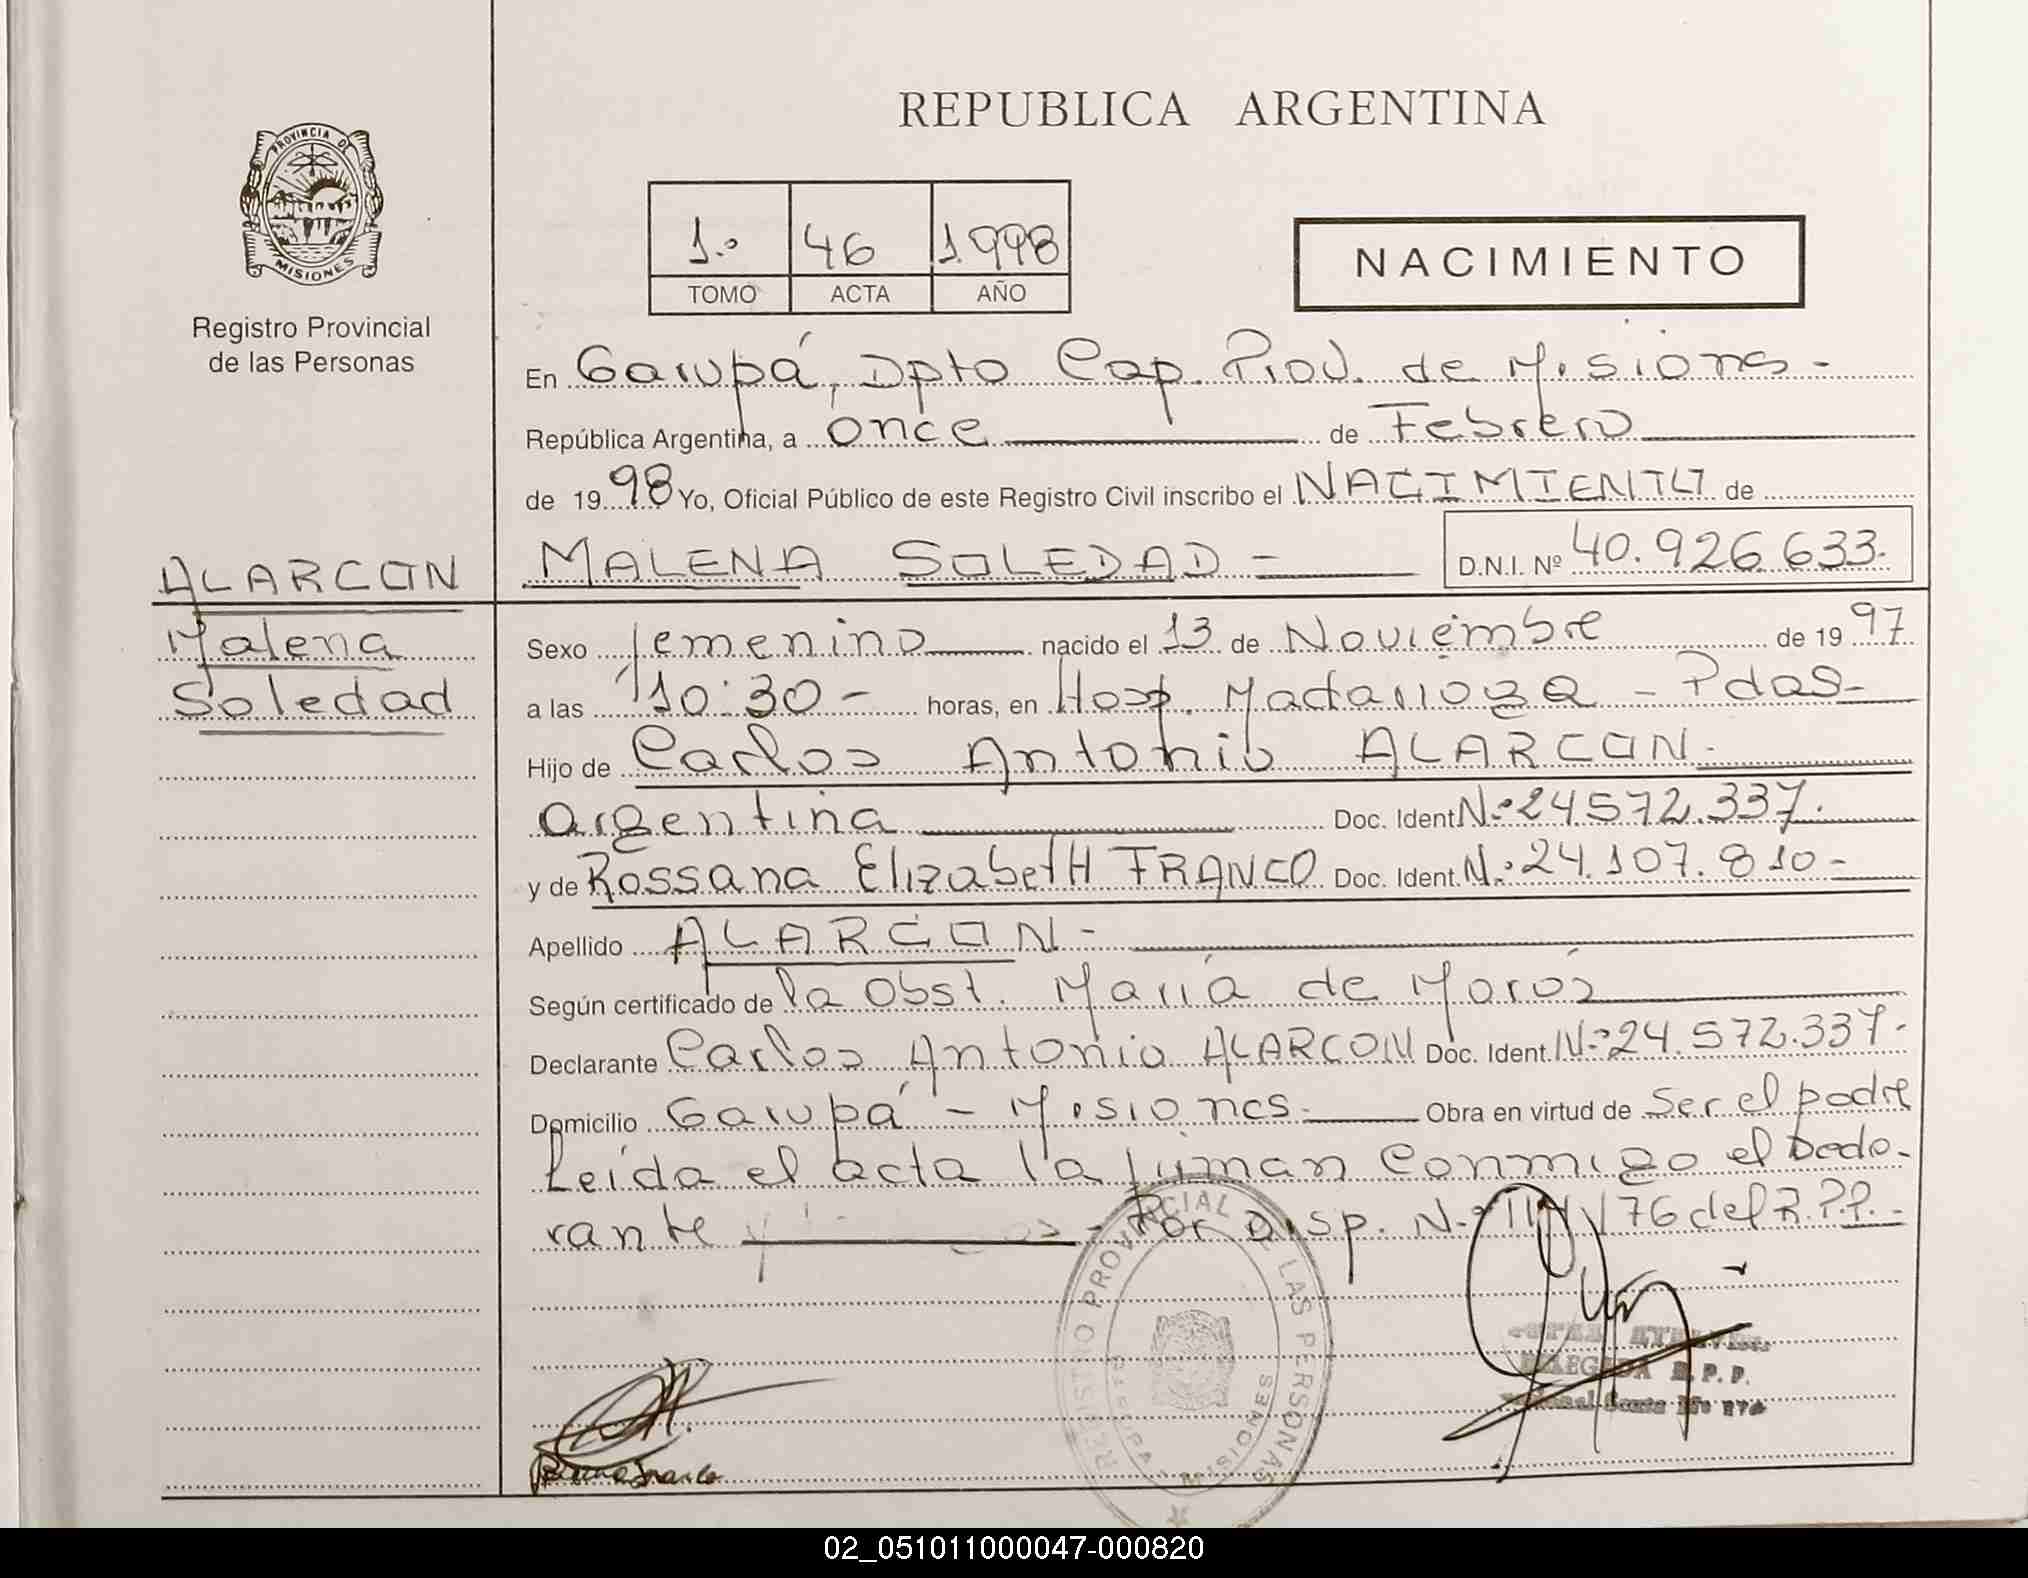 REPUBLICA ARGENTINA
PROVINCIA DE
MISIONES
Registro Provincial
de las Personas
1.º 46 1.998
TOMO ACTA AÑO
NACIMIENTO
En Garupá, Dpto Cap. Prov. de Misiones -
República Argentina, a once de Febrero
de 1998 Yo, Oficial Público de este Registro Civil inscribo el NACIMIENTO de
ALARCON
Malena
Soledad
MALENA SOLEDAD - D.N.I. Nº 40.926.633.
Sexo femenino nacido el 13 de Noviembre de 1997
a las 10:30 - horas, en Hosp. Madariaga - Pdas-
Hijo de Carlos Antonio ALARCON.
argentina Doc. Ident Nº 24.572.337.
y de Rossana ElizabetH FRANCO Doc. Ident. Nº 24.107.810-
Apellido ALARCON -
Según certificado de la Obst. María de
Declarante Carlos Antonio ALARCON Doc. Ident. Nº 24.572.337.
Domicilio Garupá - Misiones. Obra en virtud de Ser el padre
Leída el acta la firman conmigo el
rante - Por Disp. N.º /76 del R.P.P. -
REGISTRO PROVINCIAL DE LAS PERSONAS
MISIONES
DELEGADA R.P.P.
02_051011000047-000820